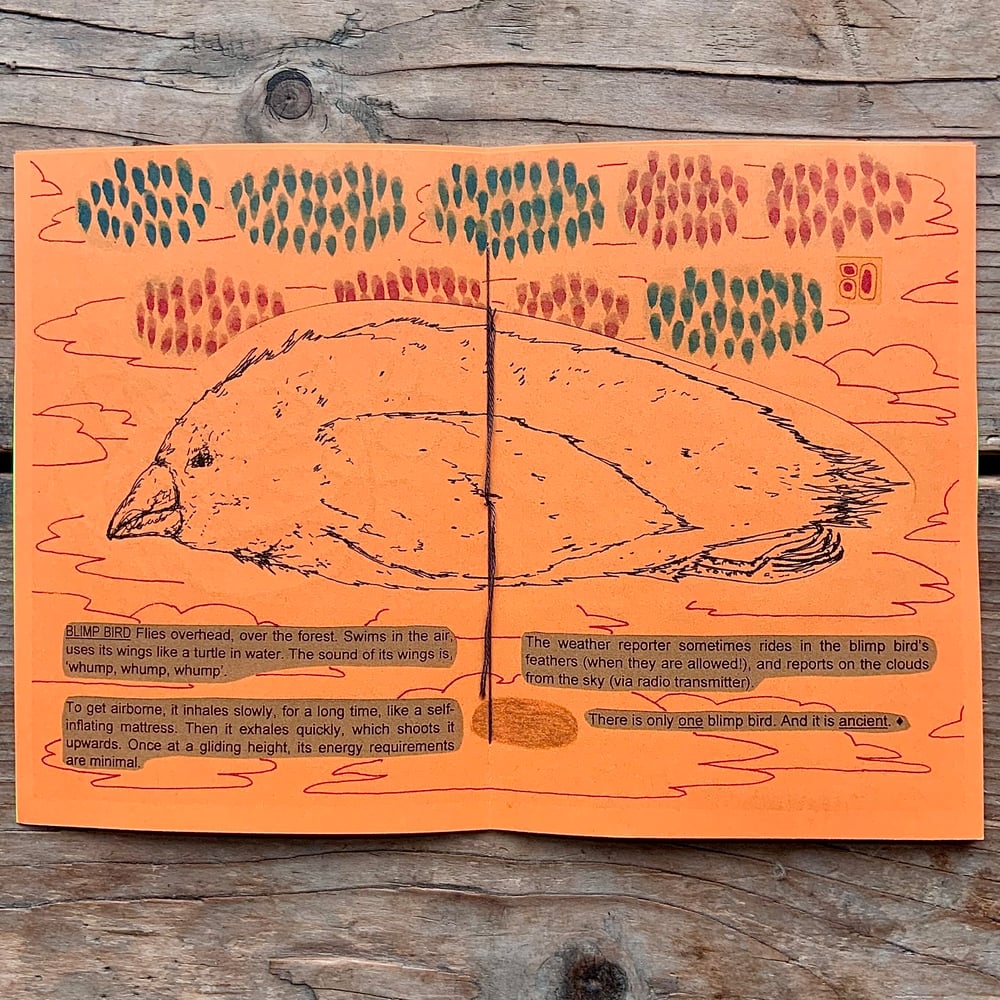 BLIMP BIRD Flies overhead, over the forest. Swims in the air,
uses its wings like a turtle in water. The sound of its wings is,
‘whump, whump, whump’.
To get airborne, it inhales slowly, for a long time, like a self-
inflating mattress. Then it exhales quickly, which shoots it
upwards. Once at a gliding height, its energy requirements
are minimal.
The weather reporter sometimes rides in the blimp bird's
feathers (when they are allowed!), and reports on the clouds
from the sky (via radio transmitter).
There is only one blimp bird. And it is ancient. ♦